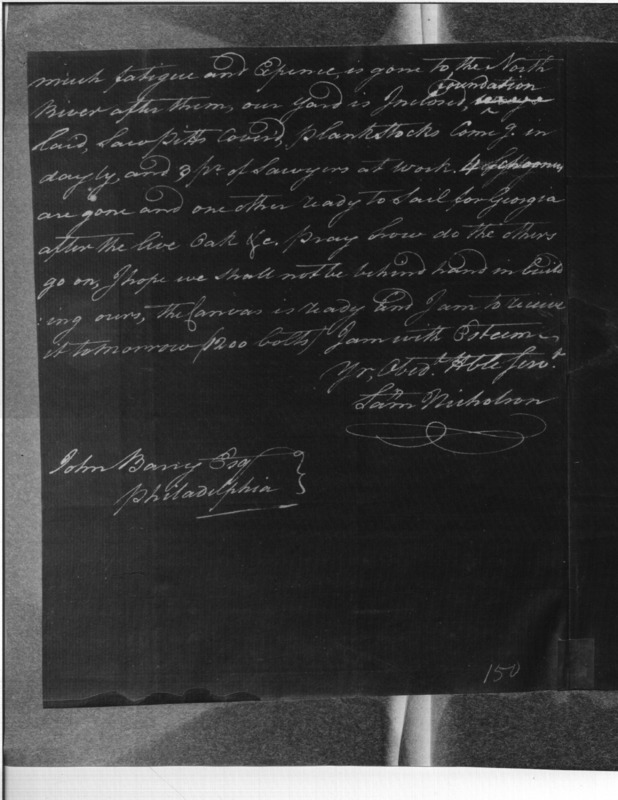 much fatigue and Expence, is gone to the North
foundation
River after them, our Yard is Inclosed,
Laid, Saw Pitts Coverd, Plank Stocks Come g. in
dayly, and 3 pr. of Sawyers at work. 4 Schooners
are gone and one other ready to Sail for Georgia
after the live Oak &c. Pray how do the others
go on, I hope we shall not be behind hand in build
:ing ours, the Canvas is ready and I am to receive
it tomorrow (1200 bolts) I am with Esteem
Yr, Obedt. Hble Servt.
Sam Nicholson
John Barry Esqr
Philadelphia
150